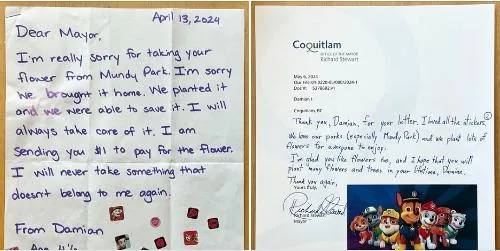 April 13, 2024
Dear Mayor,
I'm really sorry for taking your
flower from Mundy Park. I'm sorry
we brought it home. We planted it
and we were able to save it. I will
always take care of it. I am
sending you $1 to pay for the flower.
I will never take something that
doesn't belong to me again.
From Damian
Coquitlam
OFFICE OF THE MAYOR
Richard Stewart
May 6, 2024
Our File: 01-0220-03/000/2024-1
Doc #: 5278682.v1
Damian I
Coquitlam, BC
Thank you, Damian, for your letter. I loved all the stickers.
We love our parks (especially Mundy Park) and we plant lots
of flowers for everyone to enjoy.
I'm glad you like flowers too, and I hope that you will
plant many flowers and trees in your lifetime, Damian.
Thank you again,
Yours truly,
Richard Stewart
Mayor